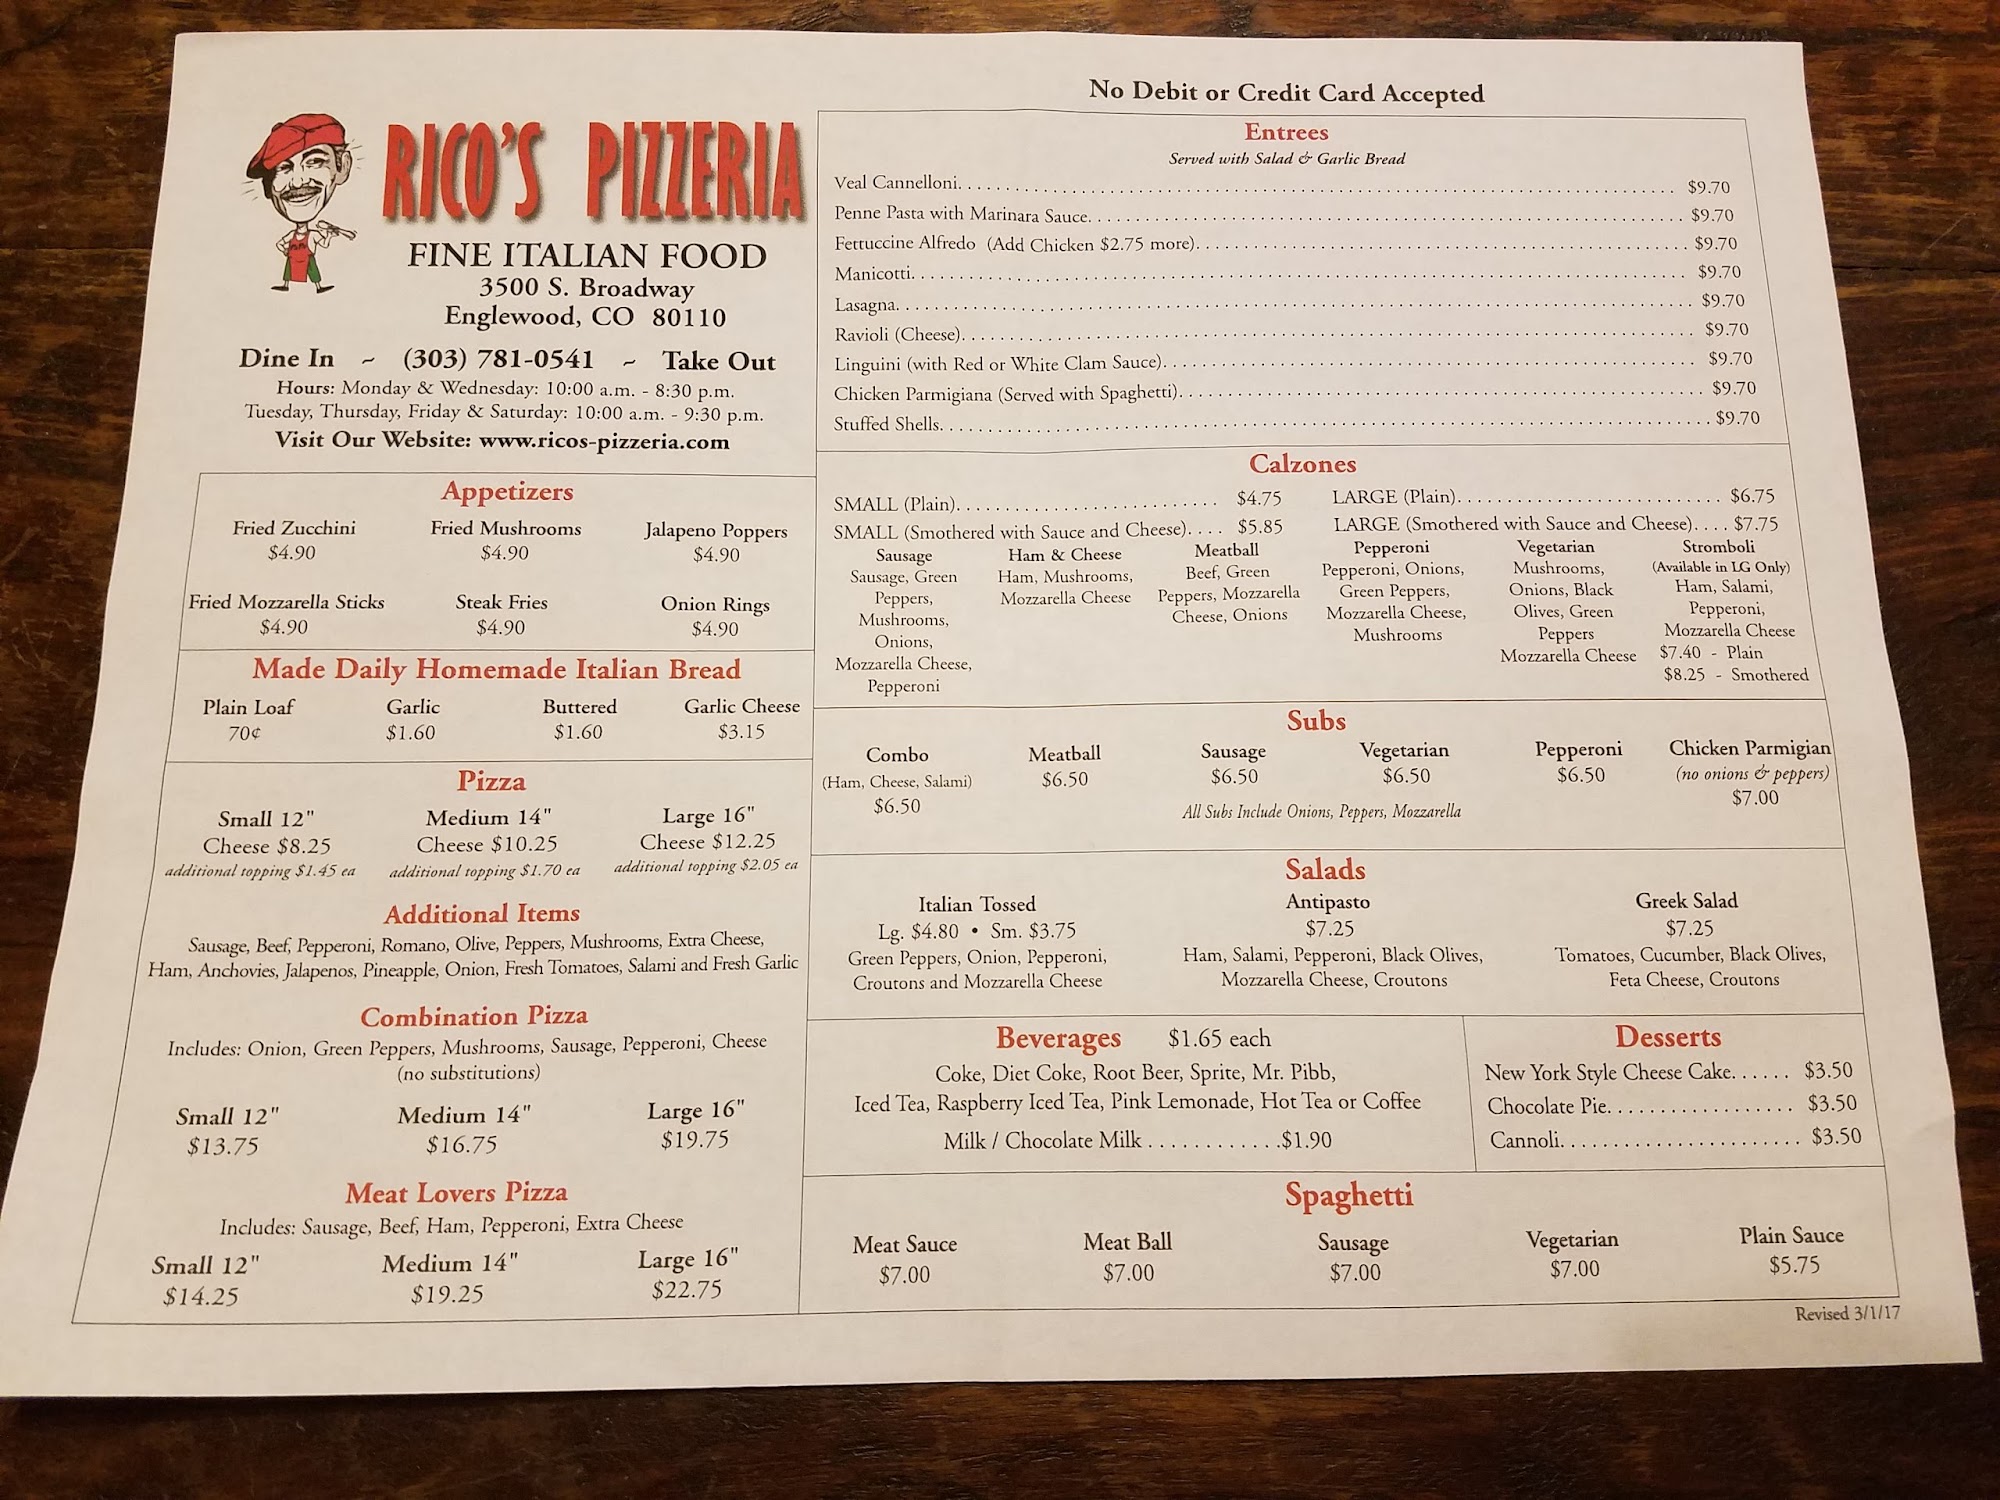 No Debit or Credit Card Accepted
RICO'S PIZZERIA
FINE ITALIAN FOOD
3500 S. Broadway
Englewood, CO 80110
Dine In ~ (303) 781-0541 ~ Take Out
Hours: Monday & Wednesday: 10:00 a.m. - 8:30 p.m.
Tuesday, Thursday, Friday & Saturday: 10:00 a.m. - 9:30 p.m.
Visit Our Website: www.ricos-pizzeria.com
Appetizers
Fried Zucchini Fried Mushrooms Jalapeno Poppers
$4.90 $4.90 $4.90
Fried Mozzarella Sticks Steak Fries Onion Rings
$4.90 $4.90 $4.90
Made Daily Homemade Italian Bread
Plain Loaf Garlic Buttered Garlic Cheese
70¢ $1.60 $1.60 $3.15
Pizza
Small 12" Medium 14" Large 16"
Cheese $8.25 Cheese $10.25 Cheese $12.25
additional topping $1.45 ea additional topping $1.70 ea additional topping $2.05 ea
Additional Items
Sausage, Beef, Pepperoni, Romano, Olive, Peppers, Mushrooms, Extra Cheese,
Ham, Anchovies, Jalapenos, Pineapple, Onion, Fresh Tomatoes, Salami and Fresh Garlic
Combination Pizza
Includes: Onion, Green Peppers, Mushrooms, Sausage, Pepperoni, Cheese
(no substitutions)
Small 12" Medium 14" Large 16"
$13.75 $16.75 $19.75
Meat Lovers Pizza
Includes: Sausage, Beef, Ham, Pepperoni, Extra Cheese
Small 12" Medium 14" Large 16"
$14.25 $19.25 $22.75
Entrees
Served with Salad & Garlic Bread
Veal Cannelloni. . . $9.70
Penne Pasta with Marinara Sauce. . . $9.70
Fettuccine Alfredo (Add Chicken $2.75 more). . . $9.70
Manicotti. . . $9.70
Lasagna. . . $9.70
Ravioli (Cheese). . . $9.70
Linguini (with Red or White Clam Sauce). . . $9.70
Chicken Parmigiana (Served with Spaghetti). . . $9.70
Stuffed Shells. . . $9.70
Calzones
SMALL (Plain). . . $4.75 LARGE (Plain). . . $6.75
SMALL (Smothered with Sauce and Cheese). . . . $5.85 LARGE (Smothered with Sauce and Cheese). . . . $7.75
Sausage
Sausage, Green
Peppers,
Mushrooms,
Onions,
Mozzarella Cheese,
Pepperoni
Ham & Cheese
Ham, Mushrooms,
Mozzarella Cheese
Meatball
Beef, Green
Peppers, Mozzarella
Cheese, Onions
Pepperoni
Pepperoni, Onions,
Green Peppers,
Mozzarella Cheese,
Mushrooms
Vegetarian
Mushrooms,
Onions, Black
Olives, Green
Peppers
Mozzarella Cheese
Stromboli
(Available in LG Only)
Ham, Salami,
Pepperoni,
Mozzarella Cheese
$7.40 - Plain
$8.25 - Smothered
Subs
Combo
(Ham, Cheese, Salami)
$6.50
Meatball
$6.50
Sausage
$6.50
Vegetarian
$6.50
Pepperoni
$6.50
Chicken Parmigian
(no onions & peppers)
$7.00
All Subs Include Onions, Peppers, Mozzarella
Salads
Italian Tossed
Lg. $4.80 • Sm. $3.75
Green Peppers, Onion, Pepperoni,
Croutons and Mozzarella Cheese
Antipasto
$7.25
Ham, Salami, Pepperoni, Black Olives,
Mozzarella Cheese, Croutons
Greek Salad
$7.25
Tomatoes, Cucumber, Black Olives,
Feta Cheese, Croutons
Beverages $1.65 each
Coke, Diet Coke, Root Beer, Sprite, Mr. Pibb,
Iced Tea, Raspberry Iced Tea, Pink Lemonade, Hot Tea or Coffee
Milk / Chocolate Milk . . . . . . . . . . . .$1.90
Desserts
New York Style Cheese Cake. . . . . . $3.50
Chocolate Pie. . . $3.50
Cannoli. . . $3.50
Spaghetti
Meat Sauce Meat Ball Sausage Vegetarian Plain Sauce
$7.00 $7.00 $7.00 $7.00 $5.75
Revised 3/1/17